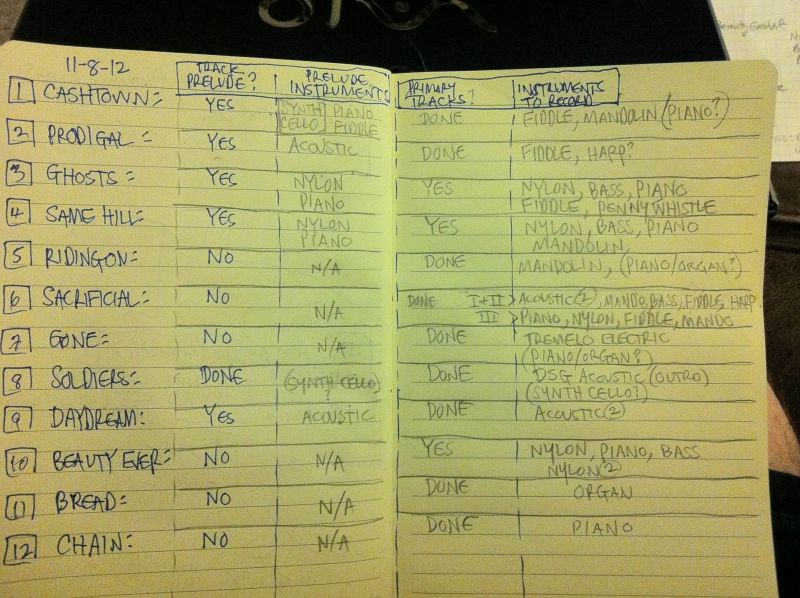 11-8-12
TRACK PRELUDE? PRELUDE INSTRUMENTS PRIMARY TRACKS? INSTRUMENTS TO RECORD
1 CASHTOWN= YES SYNTH CELLO PIANO FIDDLE DONE FIDDLE, MANDOLIN (PIANO?)
2 PRODIGAL= YES ACOUSTIC DONE FIDDLE, HARP?
3 GHOSTS= YES NYLON PIANO YES NYLON, BASS, PIANO
FIDDLE, PENNYWHISTLE
4 SAME HILL= YES NYLON PIANO YES NYLON, BASS, PIANO
MANDOLIN
5 RIDINGON= NO N/A DONE MANDOLIN, (PIANO/ORGAN?)
6 SACRIFICIAL= NO N/A DONE I+II > ACOUSTIC(2), MANDO, BASS, FIDDLE, HARP
III > PIANO, NYLON, FIDDLE, MANDO
7 GONE= NO N/A DONE TREMELO ELECTRIC
(PIANO/ORGAN?)
8 SOLDIERS= DONE (SYNTH CELLO)? DONE DSG ACOUSTIC (OUTRO)
(SYNTH CELLO?)
9 DAYDREAM: YES ACOUSTIC DONE ACOUSTIC(2)
10 BEAUTY EVER= NO N/A YES NYLON, PIANO, BASS
NYLON(2)
11 BREAD= NO N/A DONE ORGAN
12 CHAIN= NO N/A DONE PIANO